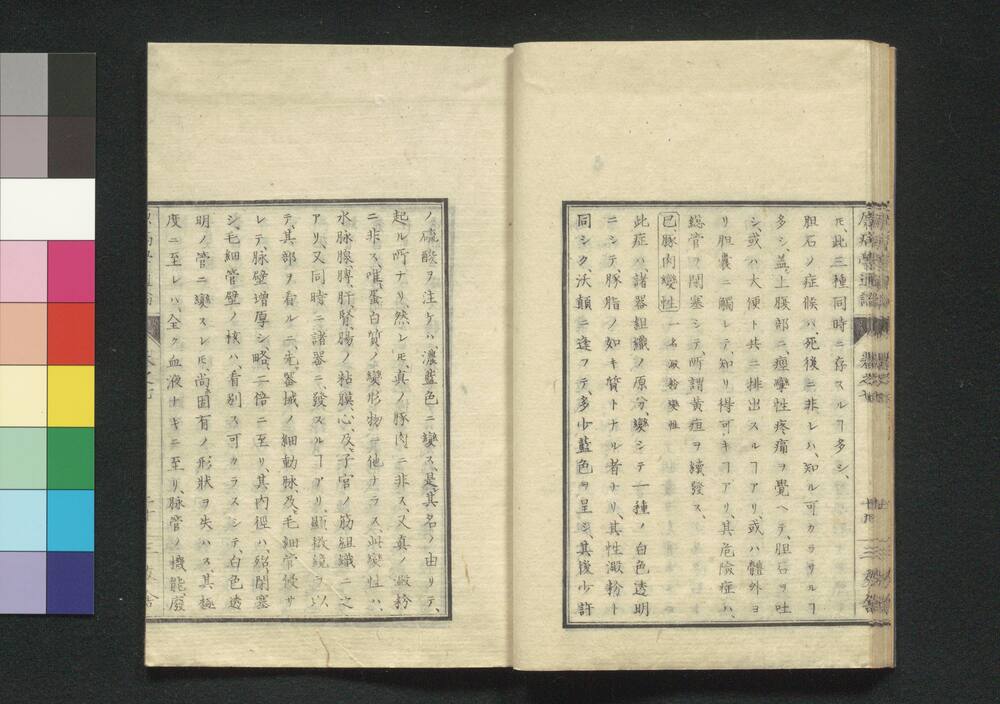 𪜈、此三種同時ニ存スルヿ多シ、
胆石ノ症候ハ、死後ニ非レハ、知ル可カラサルヿ
多シ、蓋上腹部ニ、痙攣性疼痛ヲ覺ヘテ、胆石ヲ吐
シ、或ハ大便ト共ニ排出スルヿアリ、或ハ體外ヨ
リ胆嚢ニ觸レテ、知リ得可キヿアリ、其危險症ハ、
總管ヲ閉塞シテ、所謂黄疸ヲ續發ス、
巳、豚肉變性 一名澱粉變性
此症ハ、諸器組織ノ原分、變シテ一種ノ白色透明
ニシテ豚脂ノ如キ質トナル者ナリ、其性澱粉ト
同シク、沃顛ニ逢フテ、多少藍色ヲ呈シ、其後少許
ノ硫酸ヲ注ケハ、濃藍色ニ變ス、是其名ノ由リテ、
起ル所ナリ、然レ𪜈、真ノ豚肉ニ非ス、又真ノ澱粉
ニ非ス、唯蛋白質ノ變形物ニ他ナラス、此變性ハ、
水脉腺、脾、肝、腎、腸ノ粘膜、心、及子宮ノ筋組織ニ之
アリ、又同時ニ諸器ニ、發スルヿアリ、顕微鏡ヲ以
テ、其部ヲ看ルニ、先器械ノ細動脉、及毛細管侵サ
レテ、脉壁増厚シ、略二倍ニ至リ、其内徑ハ、殆閉塞
シ、毛細管壁ノ核ハ、看別ス可カラスシテ、白色透
明ノ管ニ變スレ𪜈、尚固有ノ形狀ヲ失ハス、其極
度ニ至レハ、全ク血液ナキニ至リ、脉管ノ機能廢